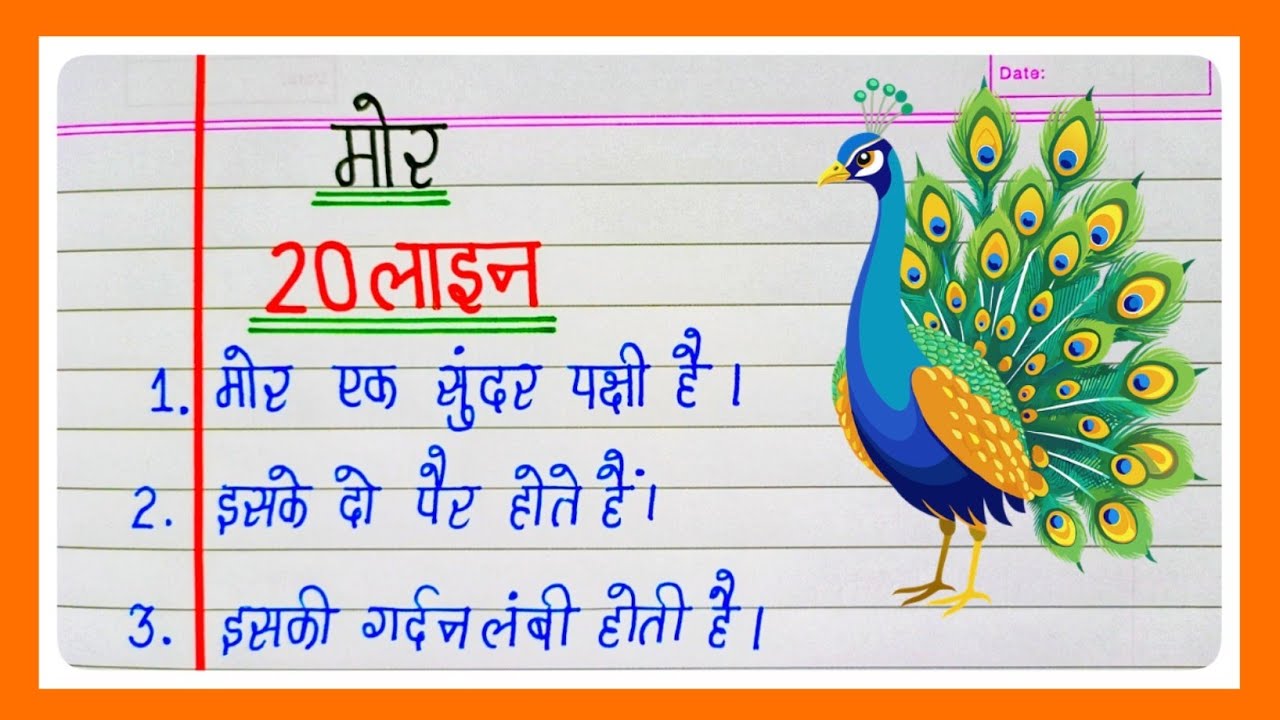 Date:
मोर
20 लाइन
1. मोर एक सुंदर पक्षी है।
2. इसके दो पैर होते हैं।
3. इसकी गर्दन लंबी होती है।